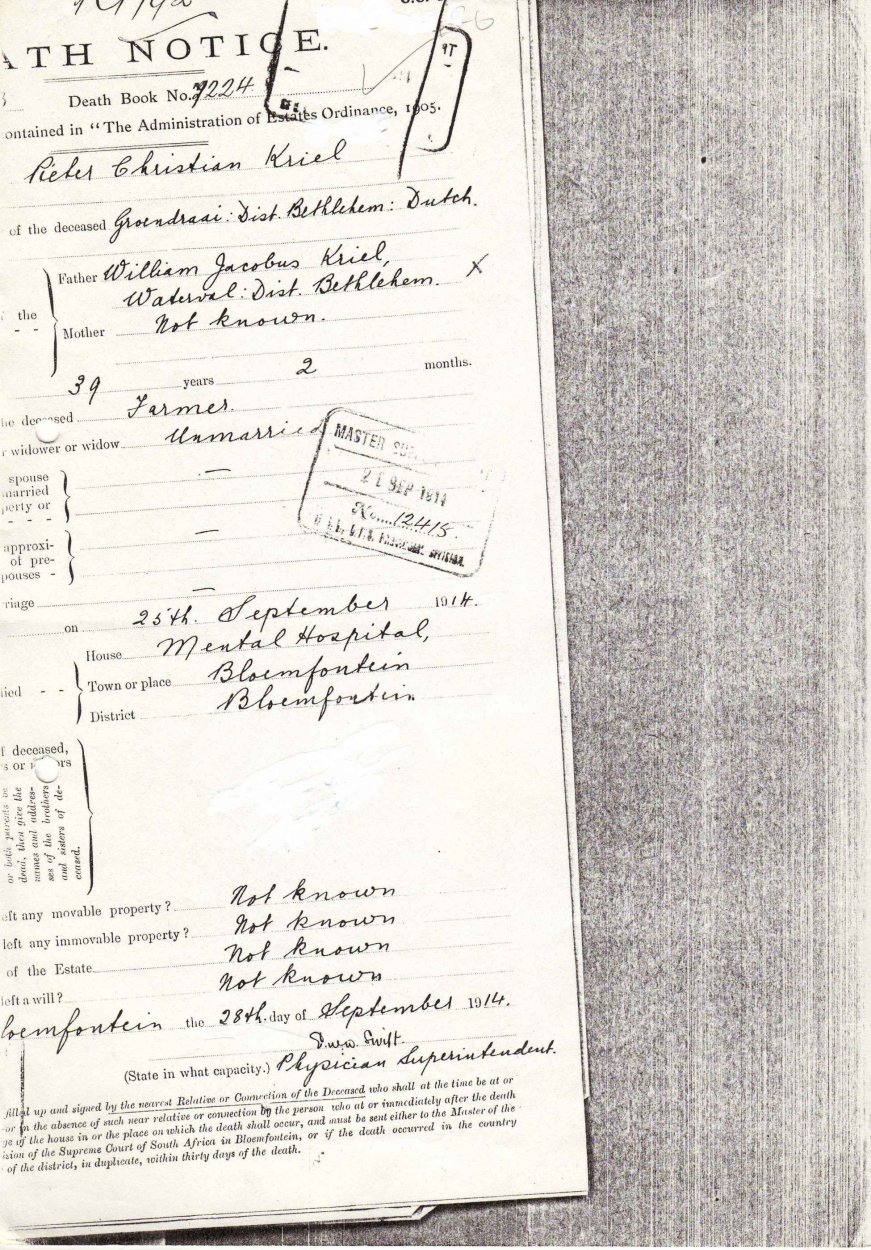 ATH NOTICE.
Death Book No. 7224
ontained in "The Administration of Estates Ordinance, 1905.
Pieter Christian Kriel
of the deceased Groendraai: Dist. Bethlehem: Dutch.
Father William Jacobus Kriel,
the Waterval: Dist. Bethlehem. X
Mother Not known.
39 years 2 months.
he deceased Farmer.
r widower or widow Unmarried
MASTER
spouse
married
perty or
21 SEP 1914
No. 12415.
approxi-
of pre-
pouses -
rriage
on 25th. September 1914.
House Mental Hospital,
died - - Town or place Bloemfontein
District Bloemfontein
f deceased,
s or
or both parents be
dead, then give the
names and addres-
ses of the brothers
and sisters of de-
ceased.
eft any movable property? Not known
left any immovable property? Not known
of the Estate Not known
left a will? Not known
loemfontein the 28th. day of September 1914.
Swift.
(State in what capacity.) Physician Superintendent.
filled up and signed by the nearest Relative or Connection of the Deceased who shall at the time be at or
or in the absence of such near relative or connection by the person who at or immediately after the death
ge of the house in or the place on which the death shall occur, and must be sent either to the Master of the
ision of the Supreme Court of South Africa in Bloemfontein, or if the death occurred in the country
of the district, in duplicate, within thirty days of the death.